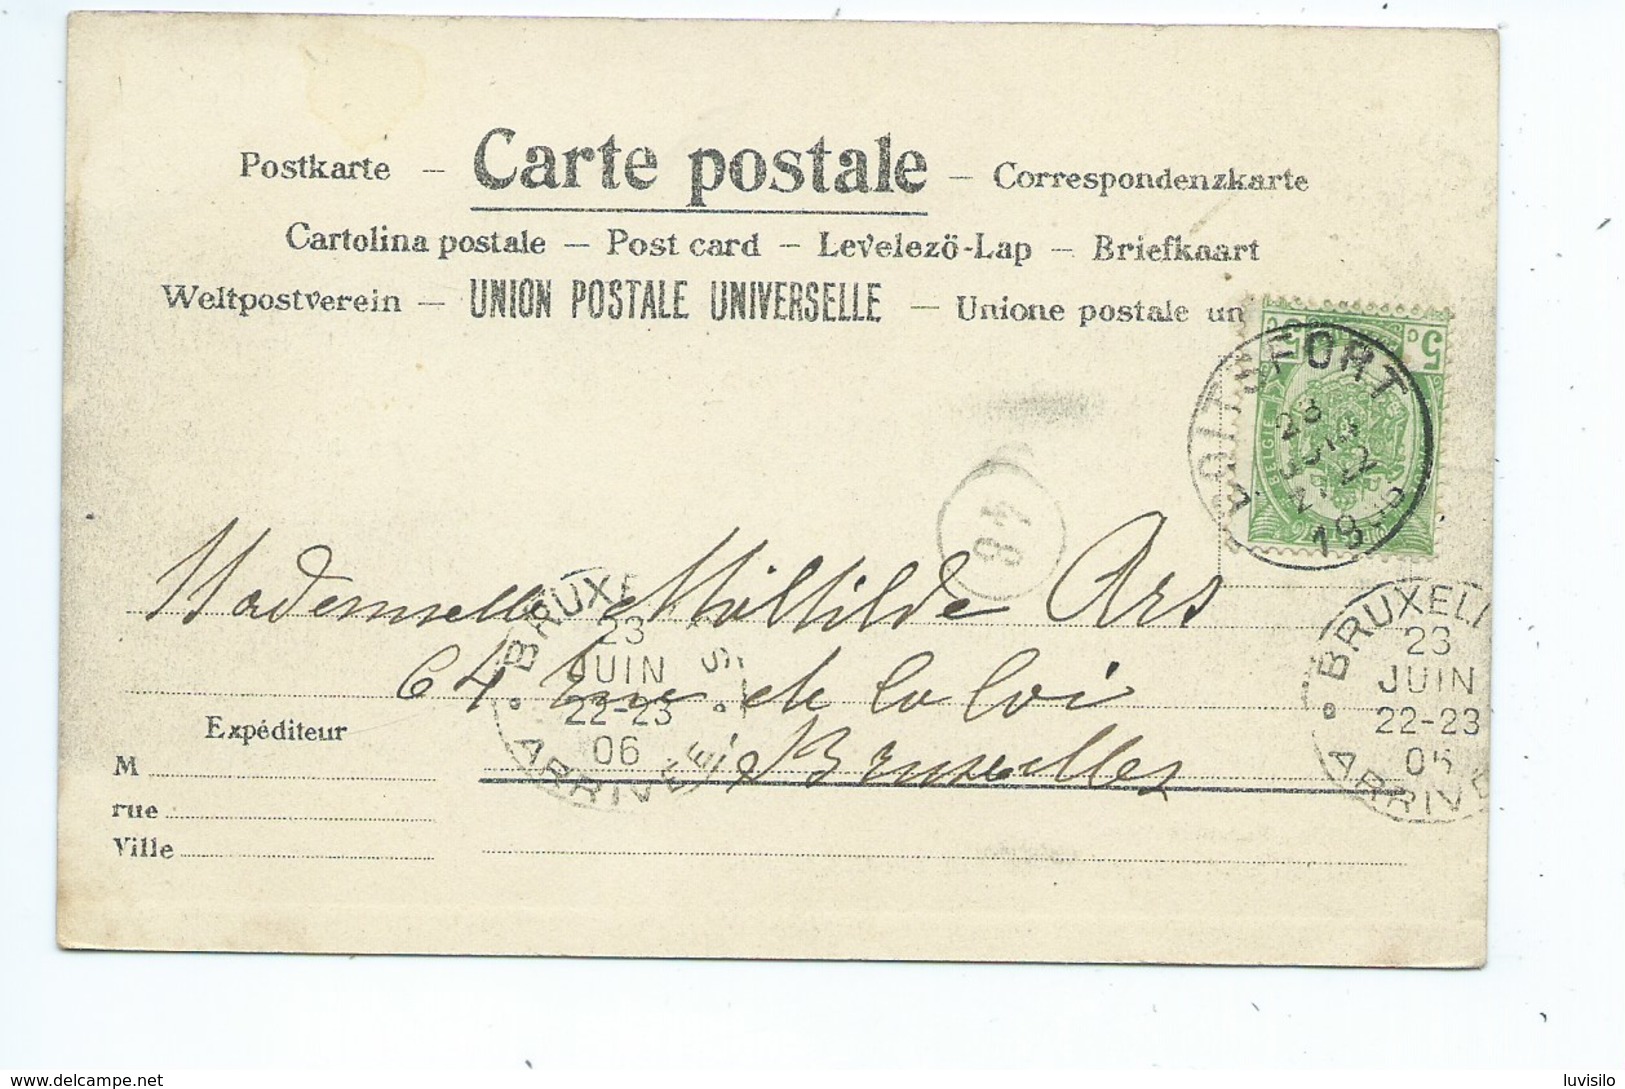 Postkarte – Carte postale – Correspondenzkarte
Cartolina postale – Post card – Levelezö-Lap – Briefkaart
Weltpostverein – UNION POSTALE UNIVERSELLE – Unione postale un
5 c c 5
BELGIE
FORT
23
18
46
Mademoiselle Mathilde Ars
64 rue de la loi
Bruxelles
BRUXE S
23
JUIN
22-23
06
ARRIVEE
BRUXELL
23
JUIN
22-23
06
ARRIVE
Expéditeur
M
rue
Ville
www.delcampe.net
luvisilo